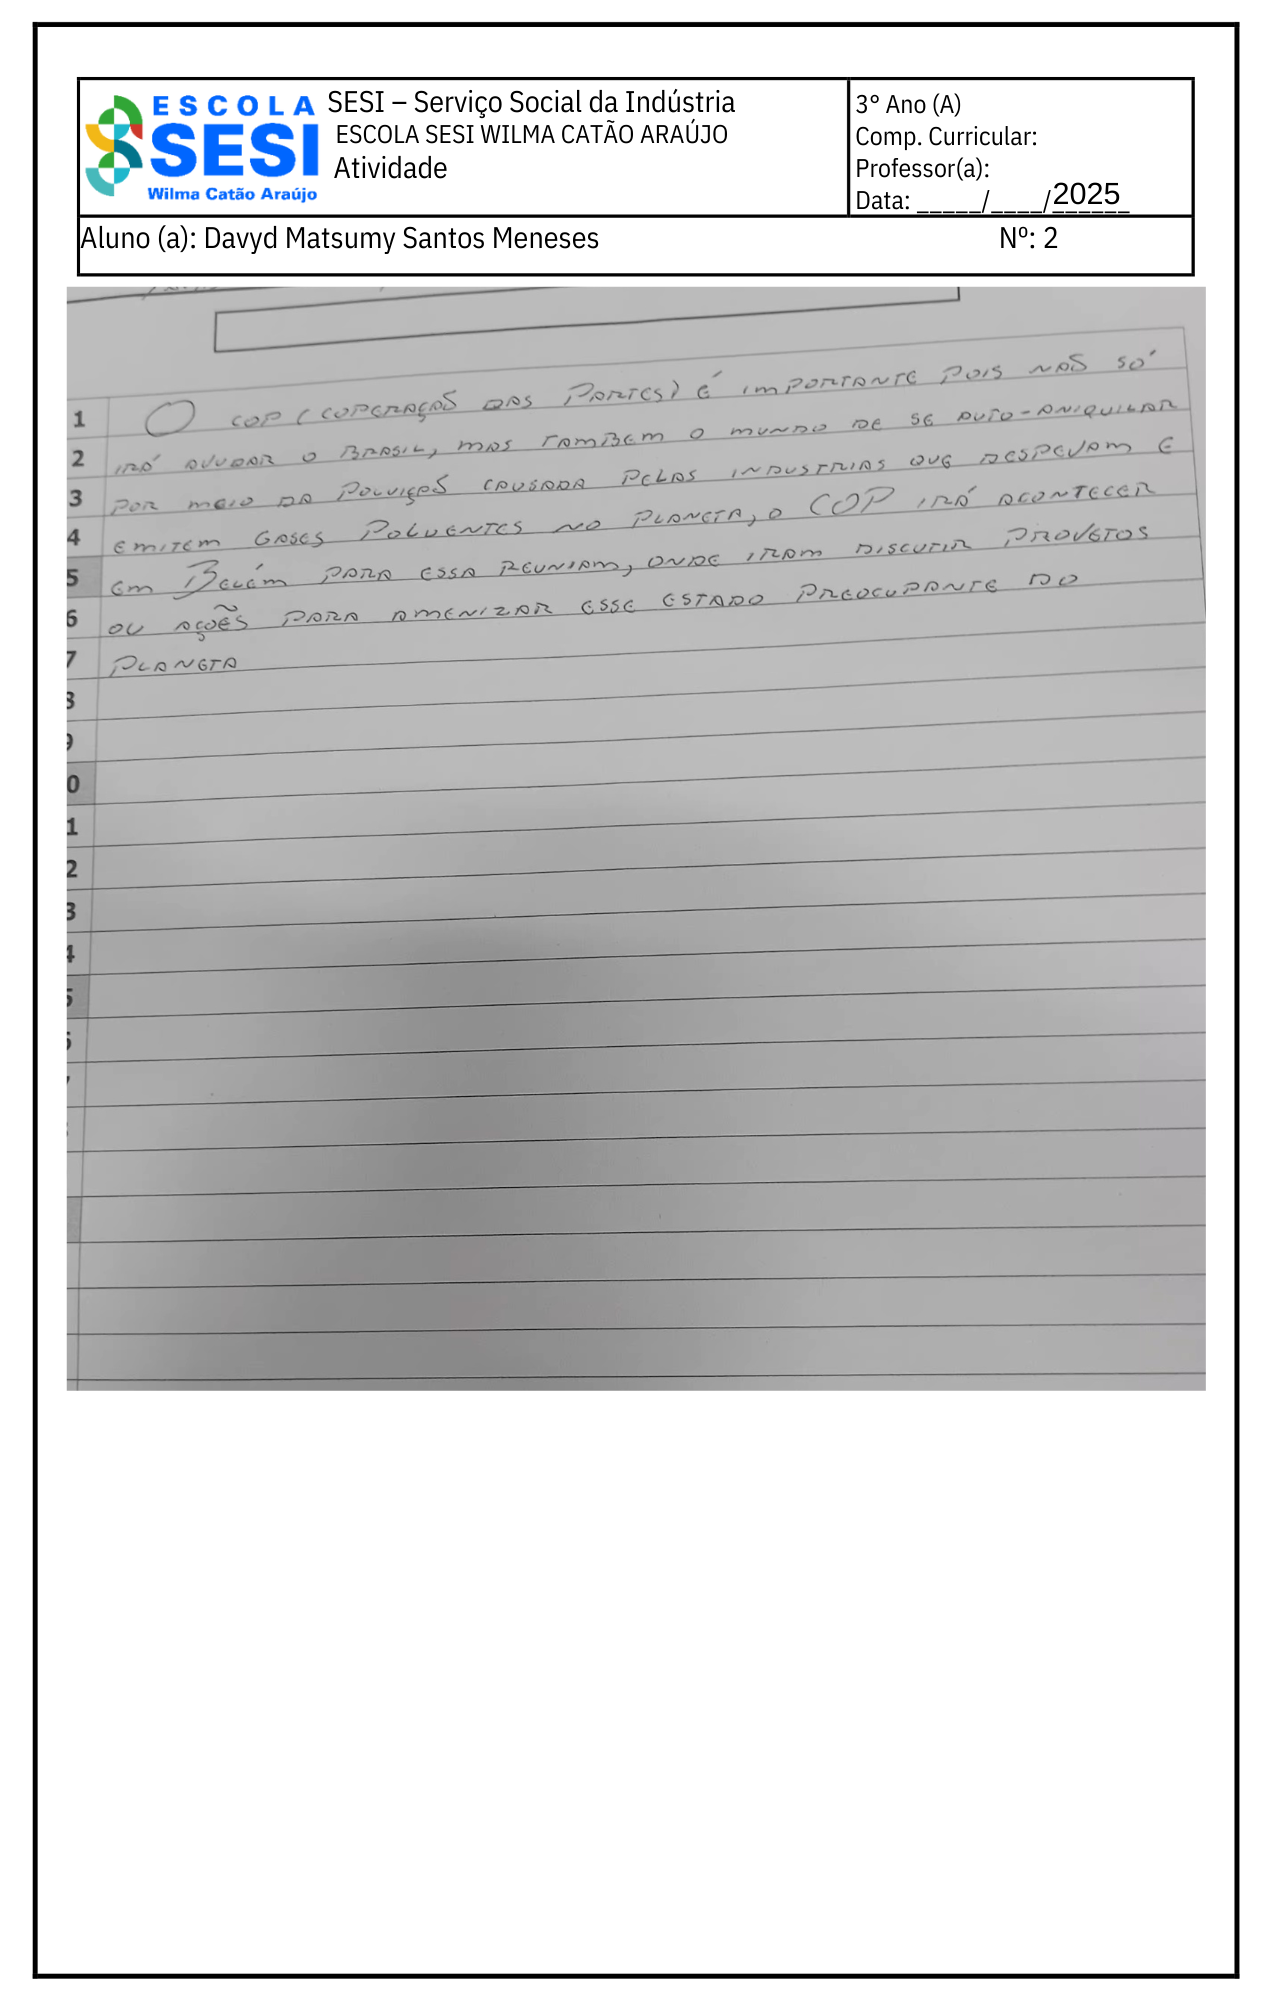 ESCOLA
SESI
Wilma Catão Araújo
SESI – Serviço Social da Indústria
ESCOLA SESI WILMA CATÃO ARAÚJO
Atividade
3° Ano (A)
Comp. Curricular:
Professor(a):
Data: _____/____/2025
Aluno (a): Davyd Matsumy Santos Meneses Nº: 2
1 O COP (COPERAÇÃO DAS PARTES) É IMPORTANTE POIS NÃO SÓ
2 IRÁ AJUDAR O BRASIL, MAS TAMBEM O MUNDO DE SE AUTO-ANIQUILAR
3 POR MEIO DA POLUIÇÃO CAUSADA PELAS INDUSTRIAS QUE DESPEJAM E
4 EMITEM GASES POLUENTES NO PLANETA, O COP IRÁ ACONTECER
5 EM BELÉM PARA ESSA REUNIAM, ONDE IRAM DISCUTIR PROJETOS
6 OU AÇÕES PARA AMENIZAR ESSE ESTADO PREOCUPANTE DO
7 PLANETA
8
9
0
1
2
3
4
5